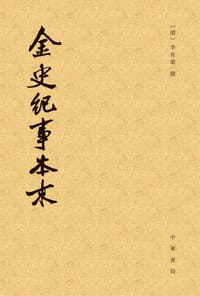 金史紀事本末
〔清〕李有棠 撰
中華書局